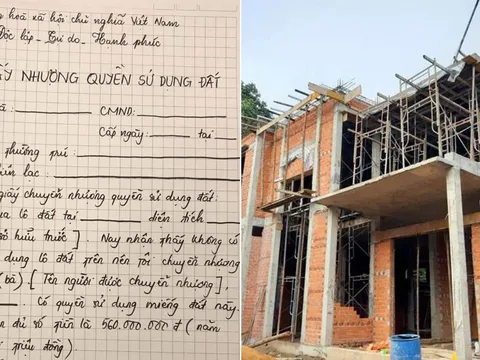 g hoà xã hội chủ nghĩa Việt Nam
Độc lập - Tự do - Hạnh phúc
ẤY NHƯỢNG QUYỀN SỬ DỤNG ĐẤT
CMND:
Cấp ngày: tại
thường trú:
liên lạc:
giấy chuyển nhượng quyền sử dụng đất:
ua lô đất tại diện tích
sở hữu trước]. Nay nhận thấy không có
dụng lô đất trên nên tôi chuyển nhượng
(bà) [Tên người được chuyển nhượng],
. Có quyền sử dụng miếng đất này
n đủ số tiền là 560.000.000 đ (năm
i triệu đồng).